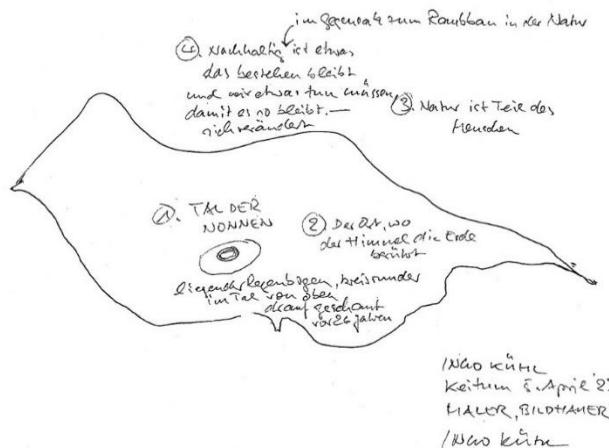 im Gegensatz zum Raubbau in der Natur
4. Nachhaltig ist etwas
das bestehen bleibt
und wir etwas tun müssen,
damit es so bleibt. —
sich verändert
3. Natur ist Teil des
Menschen
1. TAL DER
NONNEN
2 Der Ort, wo
der Himmel die Erde
berührt
liegender Regenbogen, kreisrunder
im Tal von oben
drauf geschaut
vor 26 Jahren
INGO KÜHL
Keitum 5. April '2
MALER, BILDHAUER
INGO KÜHL